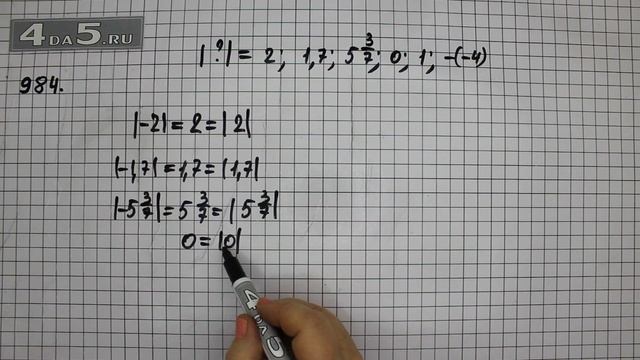 4DA5.RU
|?| = 2; 1,7; 5 3/7; 0; 1; -(-4)
984.
|-2| = 2 = |2|
|-1,7| = 1,7 = |1,7|
|-5 3/7| = 5 3/7 = |5 3/7|
0 = |0|
4DA5